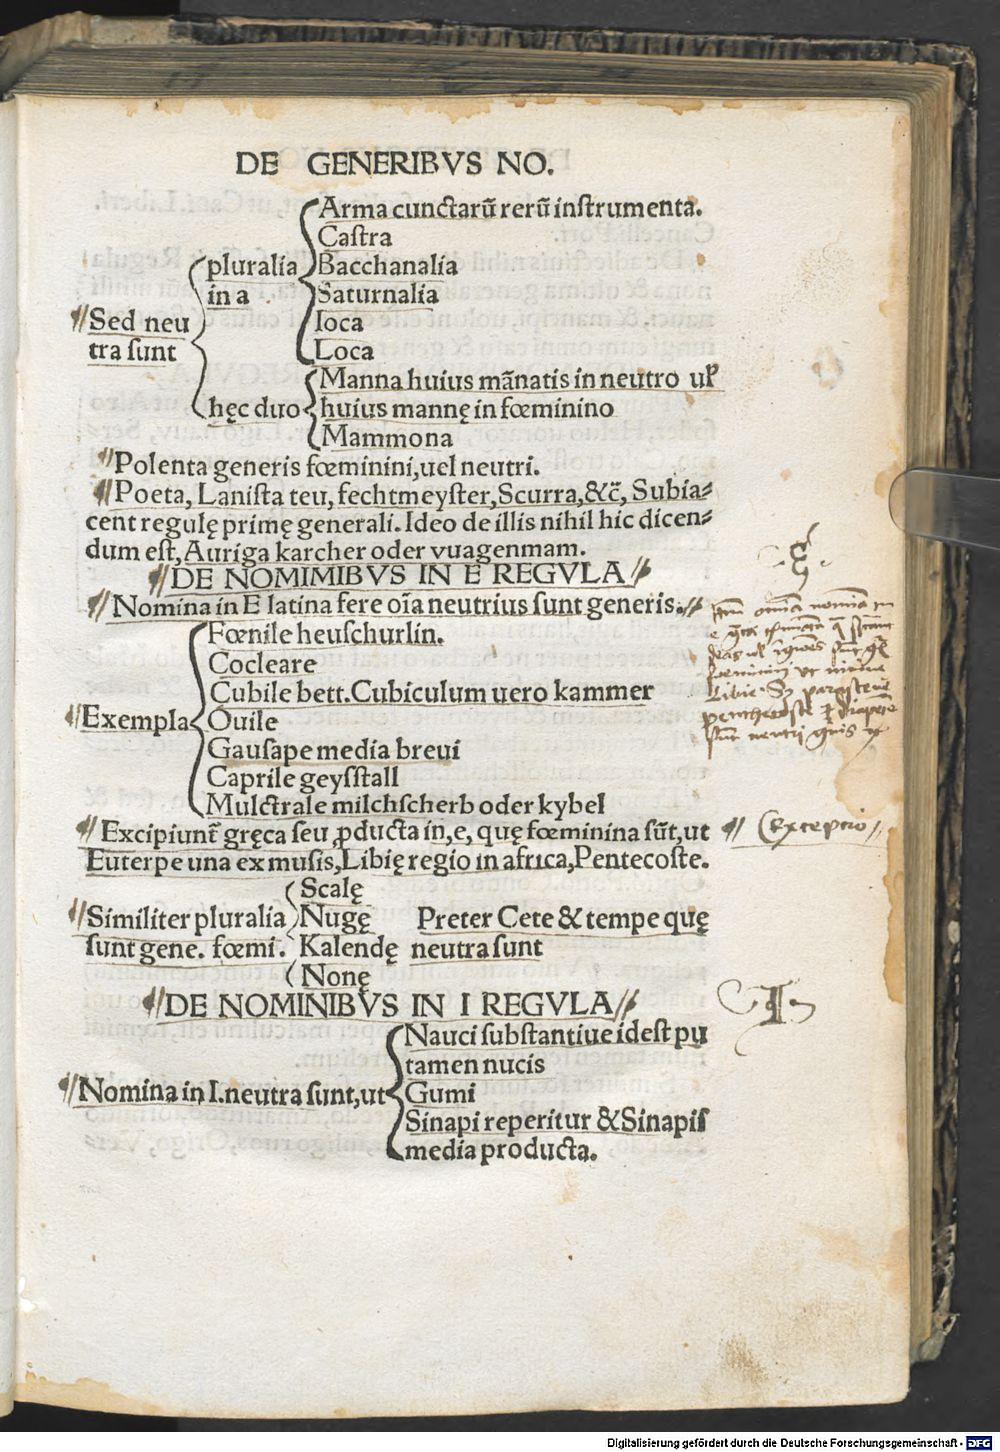 DE GENERIBVS NO.
Arma cunctarū rerū instrumenta.
Castra
pluralia Bacchanalia
in a Saturnalia
Sed neu Ioca
tra sunt Loca
Manna huius mānatis in neutro ul
hęc duo huius mannę in fœminino
Mammona
Polenta generis fœminini, uel neutri.
Poeta, Lanista teu, fechtmeyster, Scurra, &c̄, Subia⸗
cent regulę primę generali. Ideo de illis nihil hic dicen⸗
dum est, Auriga karcher oder vuagenmam.
DE NOMIMIBVS IN E REGVLA
Nomina in E latina fere oīa neutrius sunt generis.
Fœnile heuschurlin.
Cocleare
Cubile bett. Cubiculum uero kammer
Exempla Ouile
Gausape media breui
Caprile geysstall
Mulctrale milchscherb oder kybel
Excipiunt̄ gręca seu ꝓducta in, e, quę fœminina sūt, ut
Exceptio
Euterpe una ex musis, Libię regio in africa, Pentecoste.
Scalę
Similiter pluralia Nugę Preter Cete & tempe quę
sunt gene. fœmi. Kalendę neutra sunt
Nonę
DE NOMINIBVS IN I REGVLA
I
Nauci substantiue idest pu
tamen nucis
Nomina in I. neutra sunt, ut Gumi
Sinapi reperitur & Sinapis
media producta.
Digitalisierung gefördert durch die Deutsche Forschungsgemeinschaft - DFG